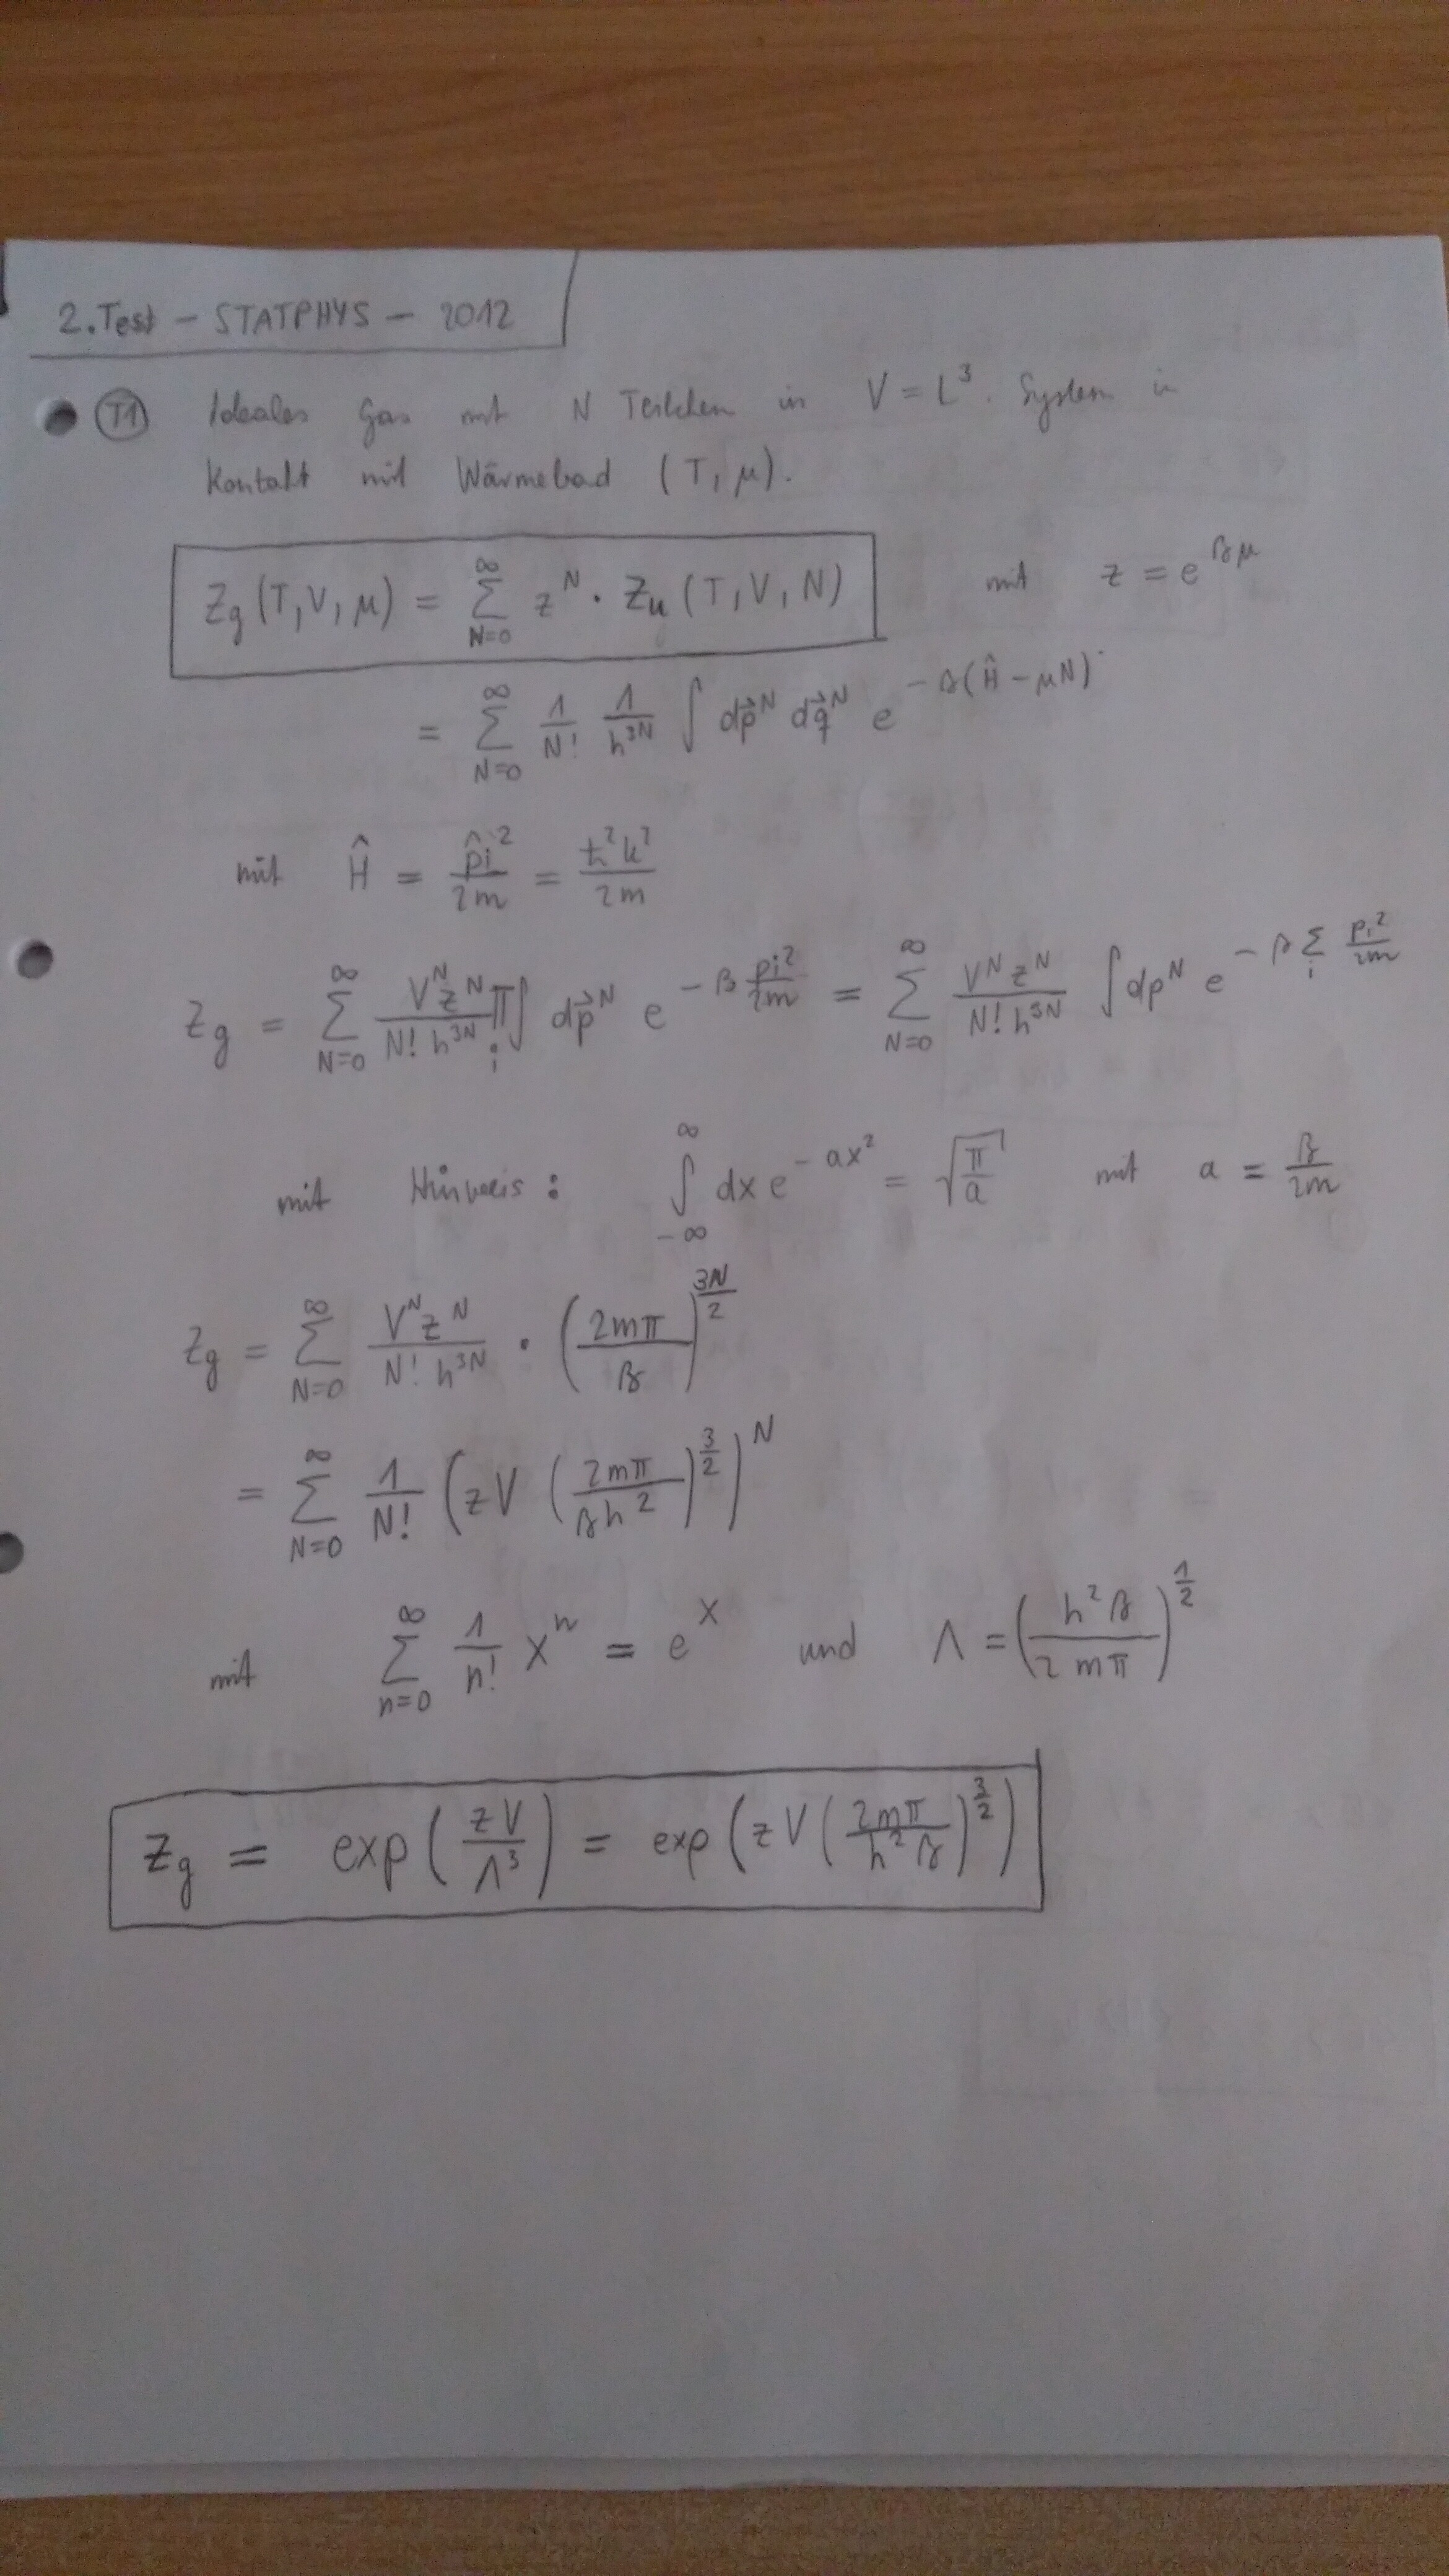 2. Test – STATPHYS – 2012
T1 Ideales Gas mit N Teilchen in V = L³. System in
Kontakt mit Wärmebad (T, μ).
Z_g (T, V, μ) = Σ_{N=0}^{∞} z^N · Z_k (T, V, N) mit z = e^{βμ}
= Σ_{N=0}^{∞} 1/N! 1/h^{3N} ∫ dp⃗^N dq⃗^N e^{-β(Ĥ - μN)}
mit Ĥ = p̂i²/2m = ħ²k²/2m
Z_g = Σ_{N=0}^{∞} V^N z^N/(N! h^{3N}) Π_i ∫ dp⃗^N e^{-β pi²/2m} = Σ_{N=0}^{∞} V^N z^N/(N! h^{3N}) ∫ dp^N e^{-β Σ_i pi²/2m}
mit Hinweis: ∫_{-∞}^{∞} dx e^{-ax²} = √(π/a) mit a = β/2m
Z_g = Σ_{N=0}^{∞} V^N z^N/(N! h^{3N}) · (2mπ/β)^{3N/2}
= Σ_{N=0}^{∞} 1/N! (zV (2mπ/βh²)^{3/2})^N
mit Σ_{n=0}^{∞} 1/n! x^n = e^x und Λ = (h²β/2mπ)^{1/2}
Z_g = exp(zV/Λ³) = exp(zV(2mπ/h²β)^{3/2})